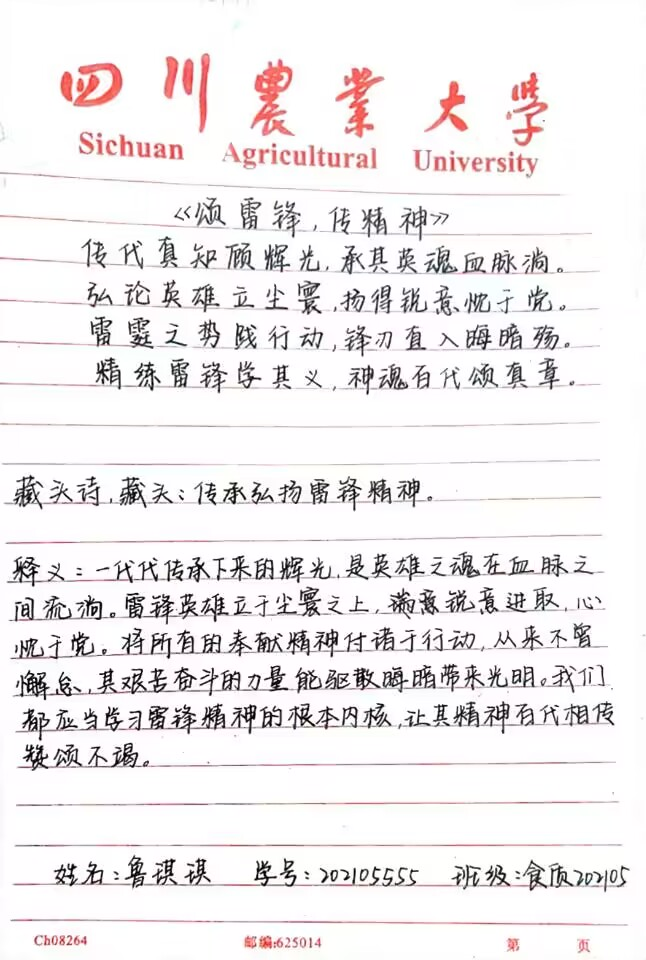 四川農業大学
Sichuan Agricultural University
《颂雷锋,传精神》
传代真知顾辉光,承其英魂血脉淌。
弘论英雄立尘寰,扬得锐意忱于党。
雷霆之势践行动,锋刃直入晦暗殇。
精练雷锋学其义,神魂百代颂真章。
藏头诗,藏头:传承弘扬雷锋精神。
释义:一代代传承下来的辉光,是英雄之魂在血脉之
间流淌。雷锋英雄立于尘寰之上,满意锐意进取,心
忱于党。将所有的奉献精神付诸于行动,从来不曾
懈怠,其艰苦奋斗的力量能驱散晦暗带来光明。我们
都应当学习雷锋精神的根本内核,让其精神百代相传
赞颂不竭。
姓名:鲁琪琪 学号:202105555 班级:食质202105
Ch08264 邮编:625014 第 页